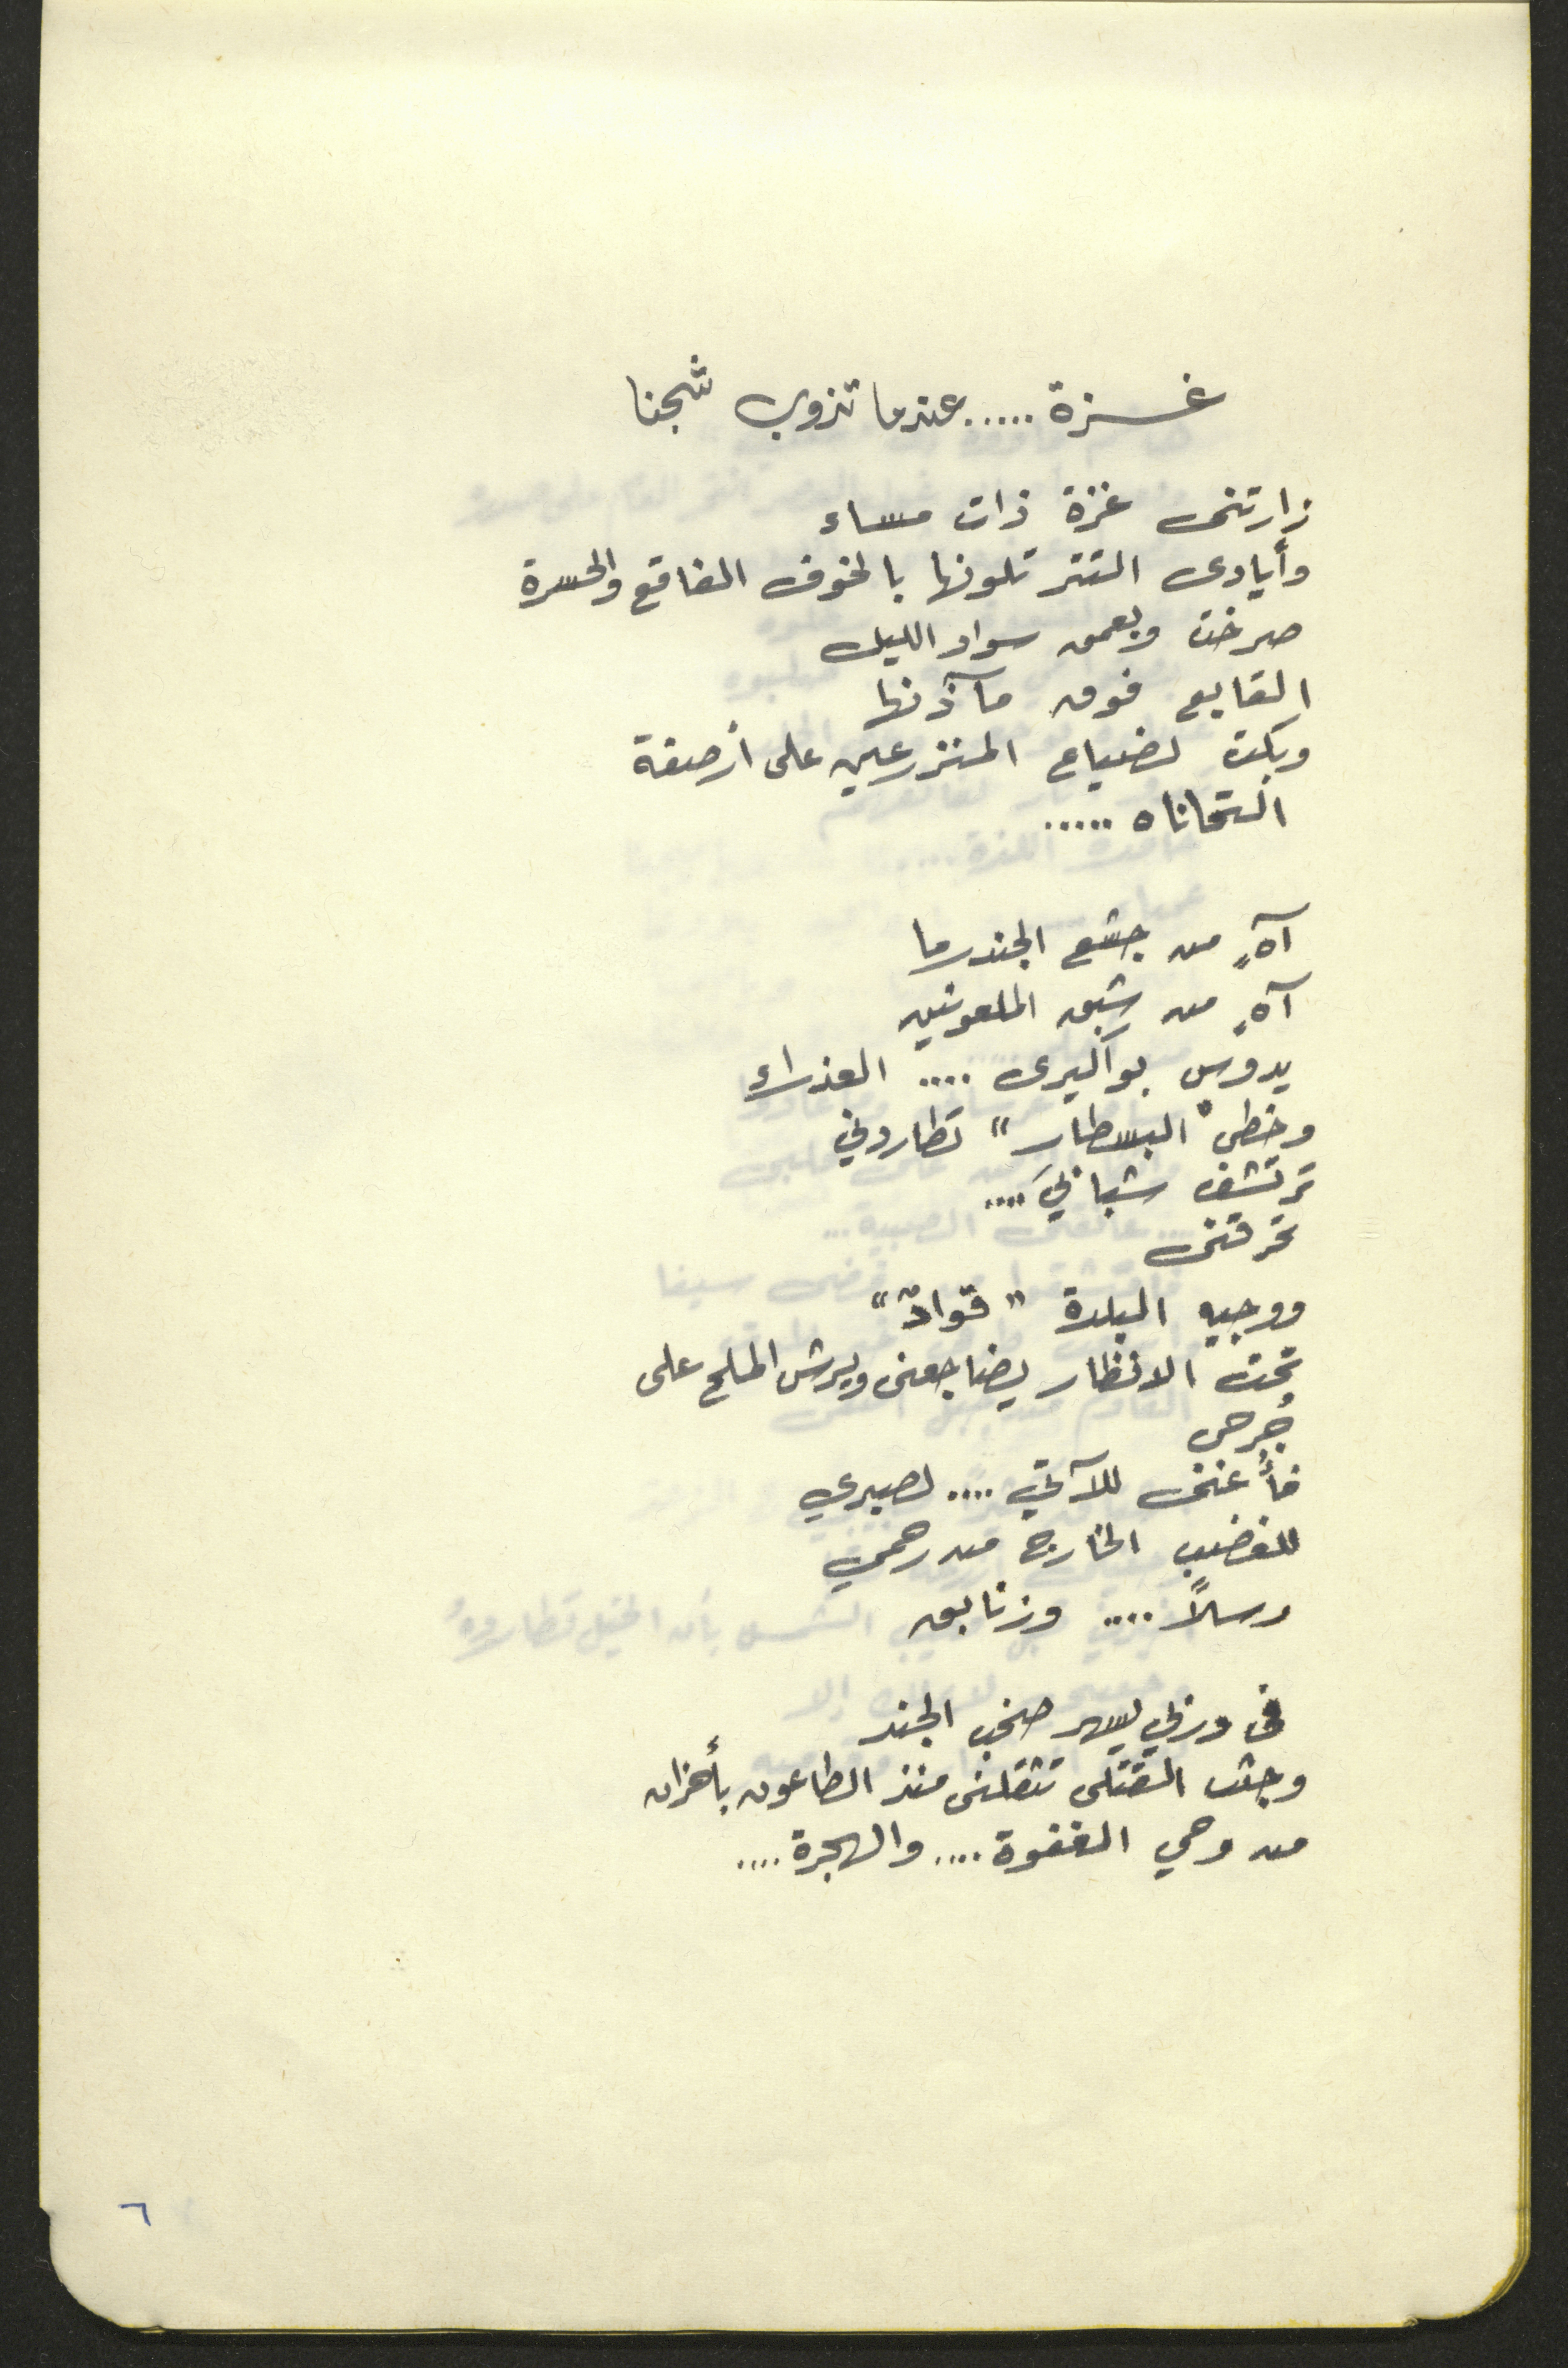 غزة ..... عندما تذوب شجنا
زارتنى غزة ذات مساء
وأيادى التتر تلونها بالخوف الفاقع والحسرة
صرخت وبعمق سواد الليل
القابع فوق مآذنها
وبكت لضياع المنزرعين على أرصفة
الستحاناه .....
آهٍ من جشع الجندرما
آهٍ من شبق الملعونين
يدوس بواكيرى .... العذراء
وخطى "البسطار" تطاردني
ترتشف شبابيَ ....
تحرقنى
ووجيه البلدة "قوادٌ"
تحت الانظار يضاجعنى ويرش الملح على
جُرحى
فأُغنى للآتي .... لصبري
للغضب الخارج من رحمي
رسلاً .... وزنابق
فى دربي يسهر صخب الجند
وجثث القتلى تثقلنى منذ الطاعون بأحزان
من وحي الغفوة .... والهجرة ....
٦